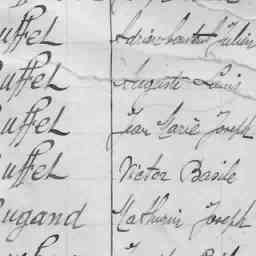 uffel Julien
uffel Auguste Louis
uffel Jean Marie Joseph
uffel Victor Basile
ugand Mathurin Joseph